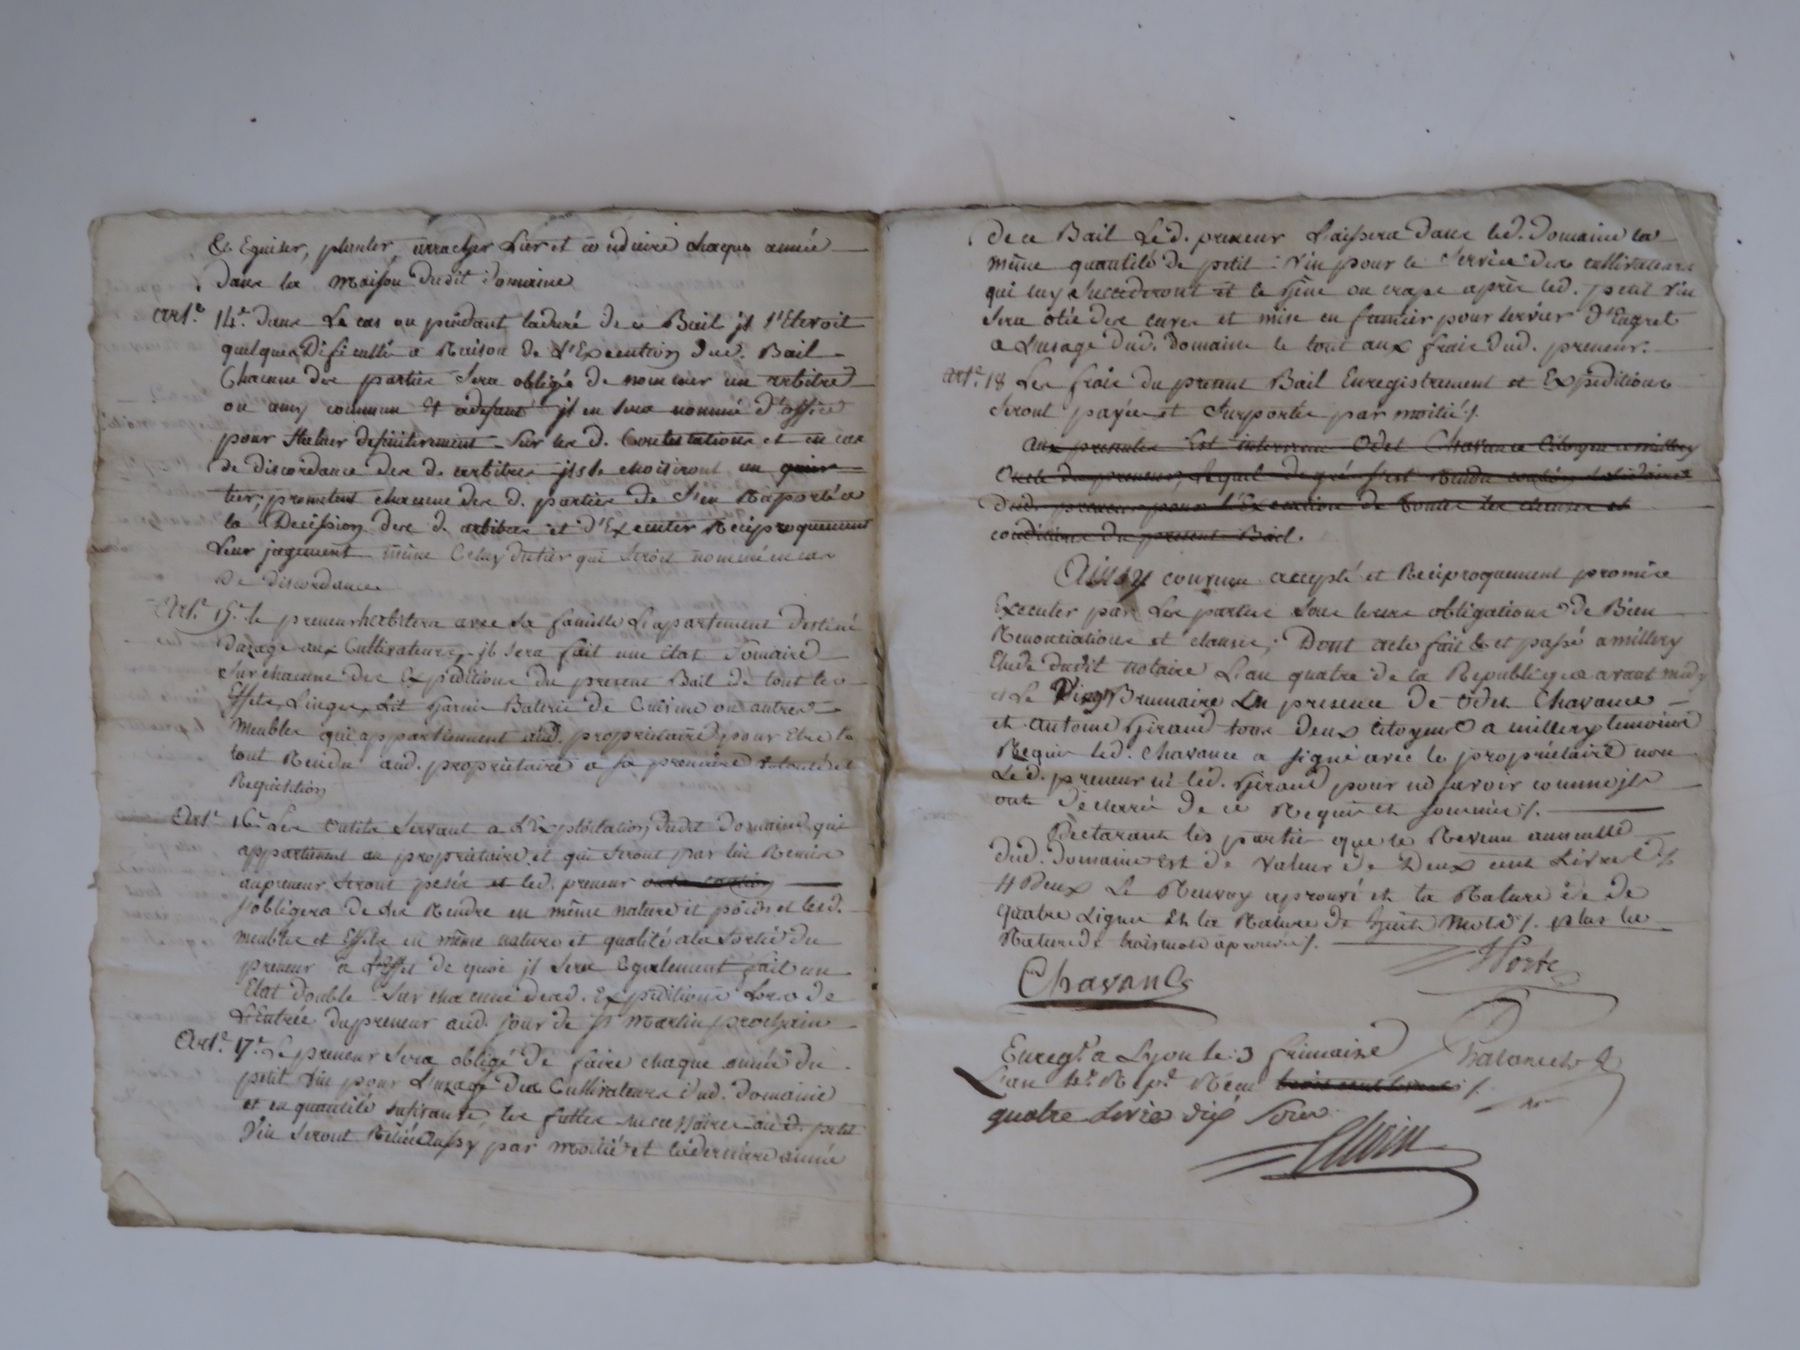 & Eguiser, planter, arracher Lier et conduire chaque année
dans la Maison dudit Domaine
Art.e 14.e dans Le cas ou pendant laduré de ce Bail jl s'Eleroit
quelques Dificulté a Raison de L'Execution dud. Bail
Chacune des parties Sera obligée de nommer un arbitre
ou amy commun et adefaut jl en sera nommé d'office
pour statuer definitivement Sur les d. Contestations et en cas
de discordance des d. arbitres jls le choisiront un
tier; promettent chacune des d. parties de S'en Raporté a
la Decision des d. arbitres et d'Executer Reciproquement
Leur jugement même Celuy dutier qui seroit nommé en cas
De discordance
Art.e 15.e le preneur habitera avec sa famille L'apartement destiné
Duzage aux Cultivateurs, jl sera fait une Etat Somaire
Sur chacune des Expeditions du present Bail de tout les
Effets, Linges, Lit Garnie Baterie de Cuisine ou autres
Meubles qui appartiennent aud. proprietaire pour Etre le
tout Rendu aud. proprietaire a sa premiere volonté et
Requisition
Art.e 16.e Les outils servant a L'Exploitation dudit Domaine qui
appartiennent au proprietaire et qui Seront par lui Remise
aupreneur seront pesés et led. preneur
s'obligera de les Rendre en même nature et poids et lesd.
meubles et Effets en même nature et qualité ala Sortie du
preneur a L'effet de quoi jl sera Egalement fait un
Etat double Sur chacune desd. Expeditions Lors de
L'Entrée dupreneur aud. jour de St. Martin prochain
Art.e 17.e Le preneur Sera obligé de faire chaque année du
petit Vin pour L'uzage des Cultivateurs dud. Domaine
et en quantité sufisante les futtes necessaires au d. petit
Vin Seront Reliée Aussy par Moitié et laderniere année
de ce Bail Led. preneur Laissera dans led. Domaine la
même quantité de petit Vin pour le Service des cultivateurs
qui luy Succederont et le Gène ou crape après led. petit Vin
Sera otée des cuves et mise en fumier pour servir d'Engret
a L'usage dud. Domaine le tout aux fraie dud. preneur.
Art.e 18 Les fraie du present Bail Enregistrement et Expeditions
Seront payée et Suportée par moitié/.
Aux presentes Est intervenu Odet Chavance Citoyen a millery
Oncle du preneur, lequel de gré s'est Rendu caution solidaire
dud. preneur pour l'Execution de toutes les clauses et
conditions du present Bail.
Ainsy convenu accepté et Reciproquement promise
Executer par Les parties sous leurs obligations de Bien
Renonciations et clauses; Dont acte fait & et passé a millery
Etude dudit notaire L'an quatre de la Republique avant midy
et Le Vingt Brumaire En presence de Odet Chavance
et Antoine Giraud tous deux Citoyens a millery temoins
Requis led. Chavance a signé avec le proprietaire non
Led. preneur ni led. Giraud pour ne savoir comme jls
ont declarré de ce Requis et Sommés/.
Declarant les parties que le Revenu annuelle
dud. Domaine est de valeur de Deux cent Livres d/.
H Deux Le Renvoy aprouvé et la Rature de de
quatre Ligne Et la Rature de huit Mots/. plus la
Rature de trois mots aprouvé/.
Chavance
Enreg.t a Lyon le 3 frimaire
L'an 4.e Rep.e Reçu
quatre Livres dix Sous